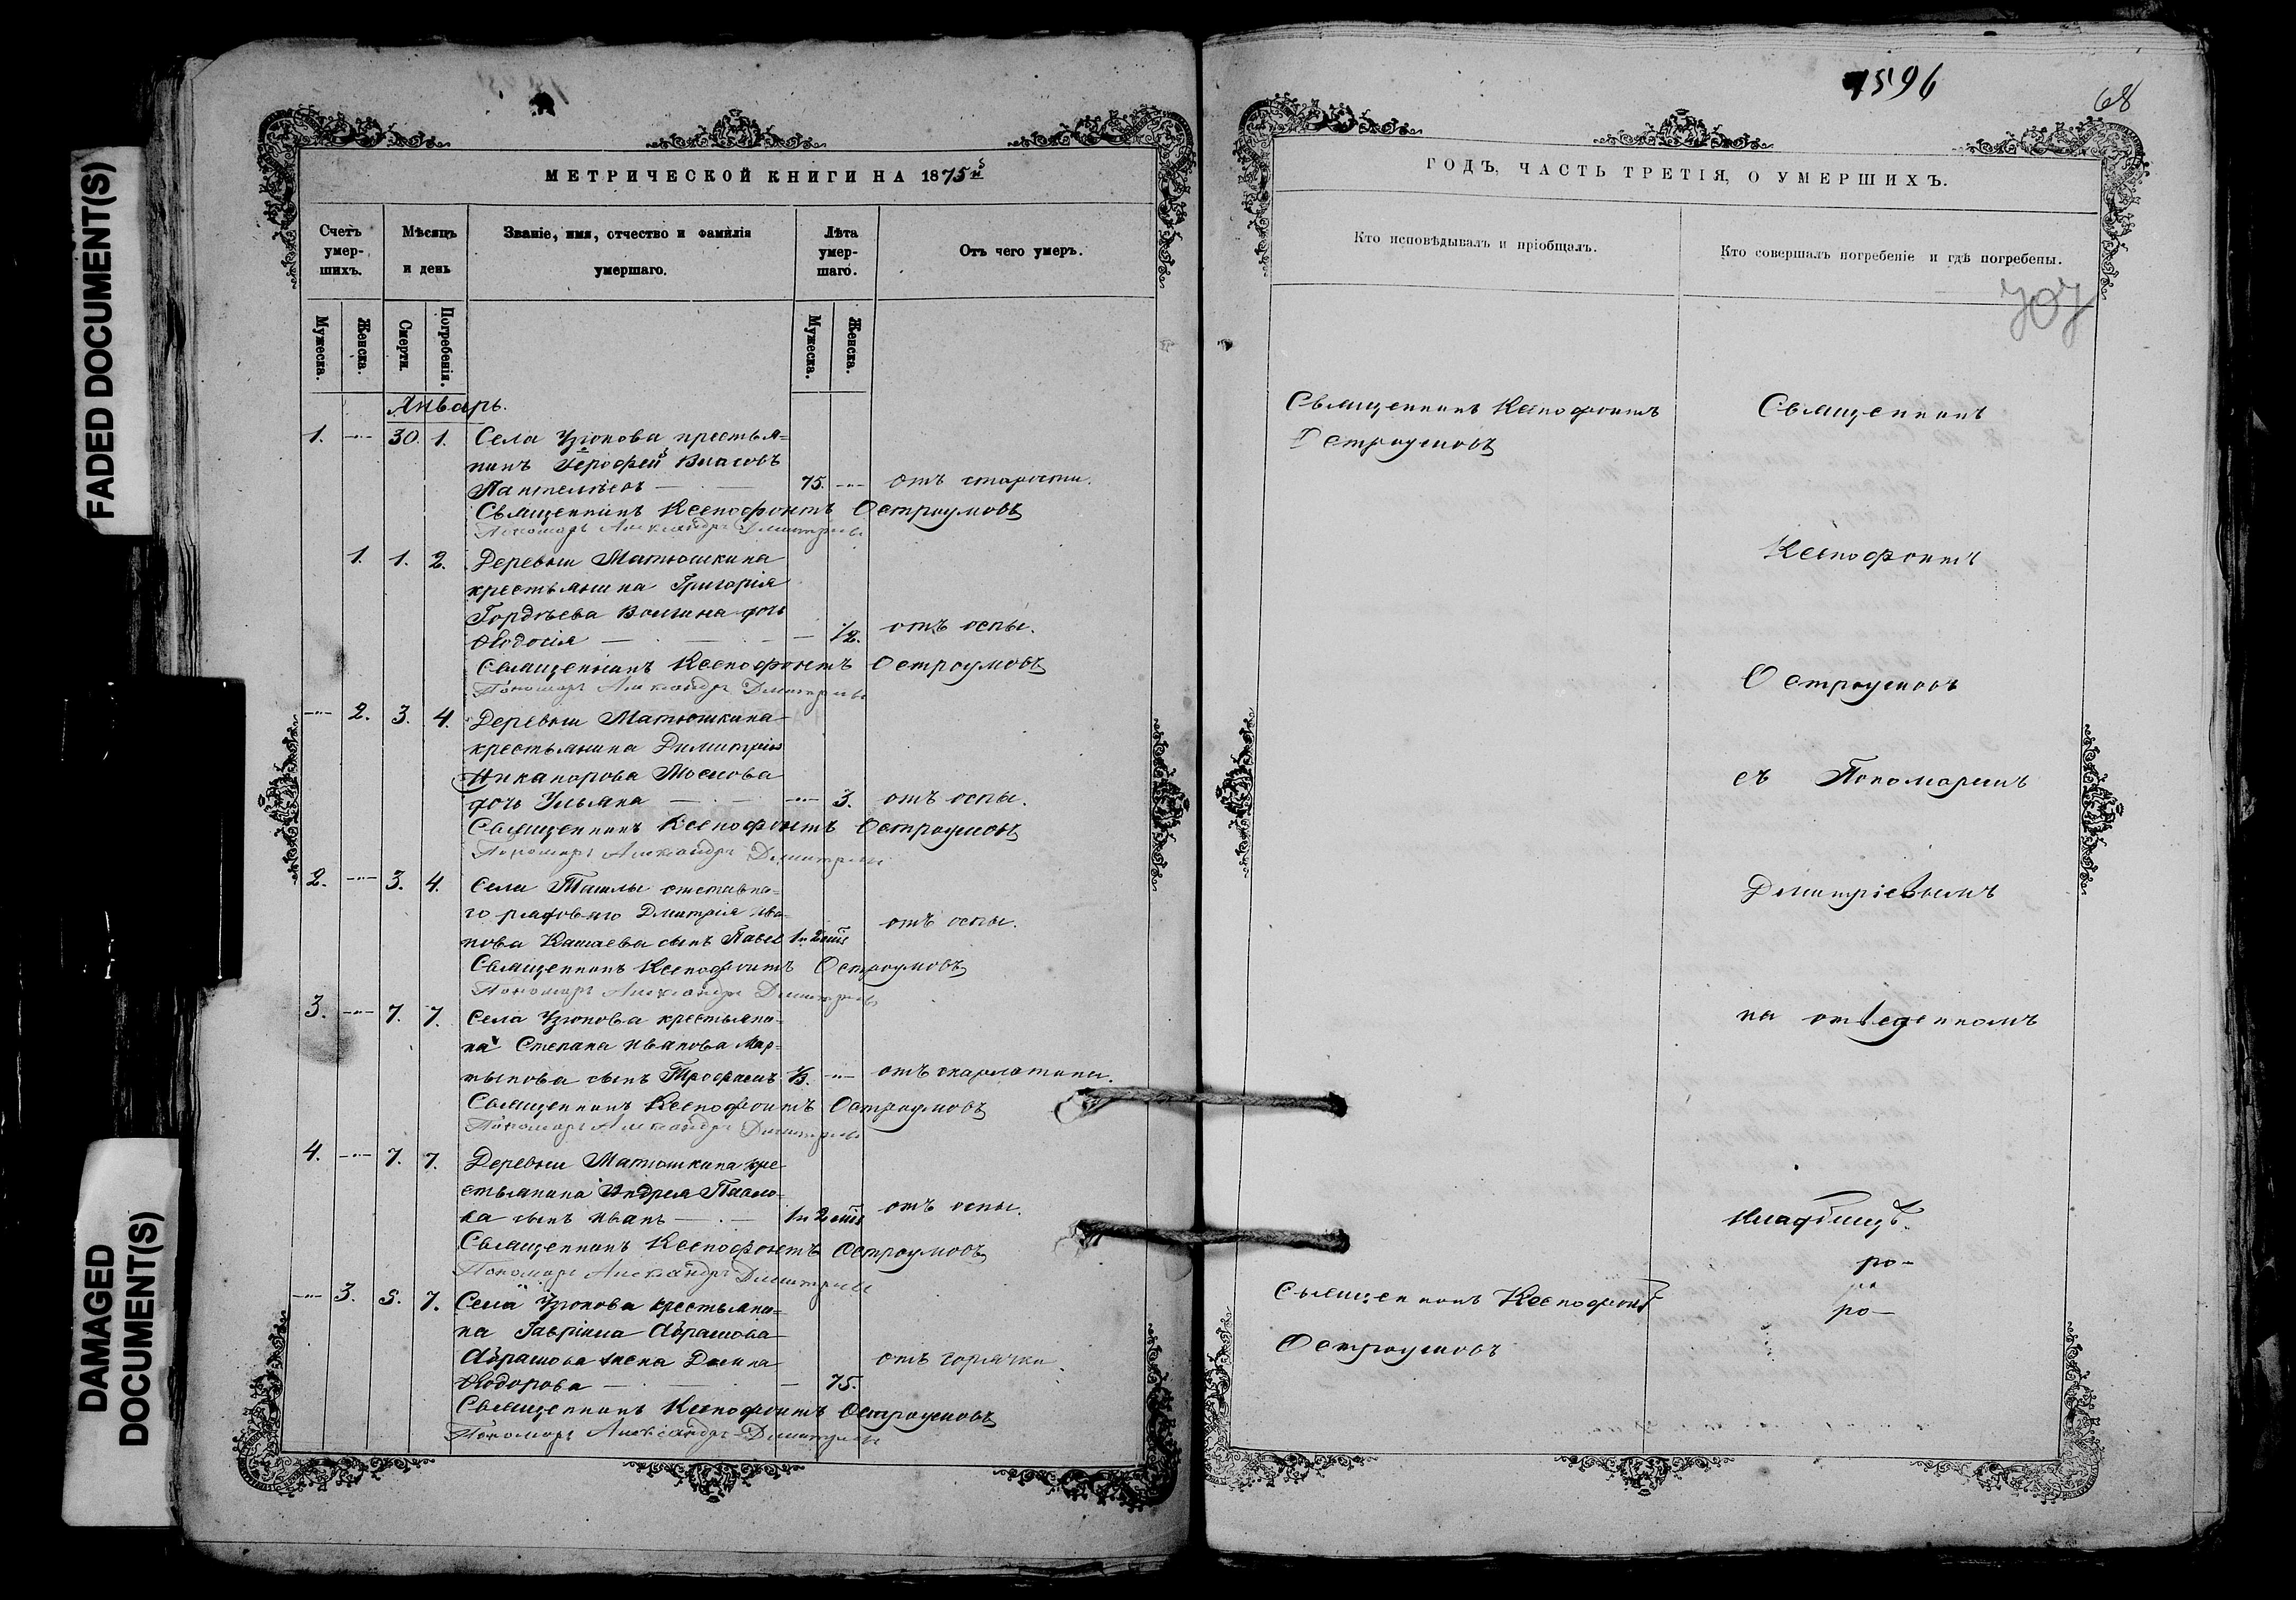 FADED DOCUMENT(S)
DAMAGED
DOCUMENT(S)
МЕТРИЧЕСКОЙ КНИГИ НА 1875й
Счетъ
умер-
шихъ.
Мѣсяцъ
и день
Званіе, имя, отчество и фамилія
умершаго.
Лѣта
умер-
шаго.
Отъ чего умеръ.
Мужеска.
Женска.
Смерти.
Погребенія.
Мужеска.
Женска.
Январь.
1. 30. 1. Села Узюкова крестья-
нинъ Іерофей Власовъ
Пантелѣевъ 75. отъ старости.
Священникъ Ксенофонтъ Остроумовъ
Пономарь Александръ Димитріевъ
1. 1. 2. Деревни Матюшкина
крестьянина Григорія
Гордѣева Волгина дочь
Ѳеодосія 1/2. отъ оспы.
Священникъ Ксенофонтъ Остроумовъ
Пономарь Александръ Димитріевъ
2. 3. 4. Деревни Матюшкина
крестьянина Димитрія
Никанорова
дочь Ульяна 3. отъ оспы.
Священникъ Ксенофонтъ Остроумовъ
Пономарь Александръ Димитріевъ
2. 3. 4. Села Ташлы отставна-
го рядоваго Дмитрія Ива-
нова сынъ Павелъ 1 и 2 отъ оспы.
Священникъ Ксенофонтъ Остроумовъ
Пономарь Александръ Димитріевъ
3. 7. 7. Села Узюкова крестьяни-
на Степана Иванова Мар-
тынова сынъ Трофимъ отъ скарлатины.
Священникъ Ксенофонтъ Остроумовъ
Пономарь Александръ Димитріевъ
4. 7. 7. Деревни Матюшкина кре-
стьянина Андрея Павло-
ва сынъ Иванъ 1 и 2 отъ оспы.
Священникъ Ксенофонтъ Остроумовъ
Пономарь Александръ Димитріевъ
3. 5. 7. Села Узюкова крестьяни-
на Гавріила Абрамова
Абрамова жена
Ѳеодорова 75. отъ горячки.
Священникъ Ксенофонтъ Остроумовъ
Пономарь Александръ Димитріевъ
1596
68
ГОДЪ, ЧАСТЬ ТРЕТІЯ, О УМЕРШИХЪ.
Кто исповѣдывалъ и пріобщалъ.
Кто совершалъ погребеніе и гдѣ погребены.
707
Священникъ Ксенофонтъ
Остроумовъ
Священникъ
Ксенофонтъ
Остроумовъ
съ Пономаремъ
Димитріевымъ
на отведенномъ
кладбищѣ.
Священникъ Ксенофонтъ
Остроумовъ